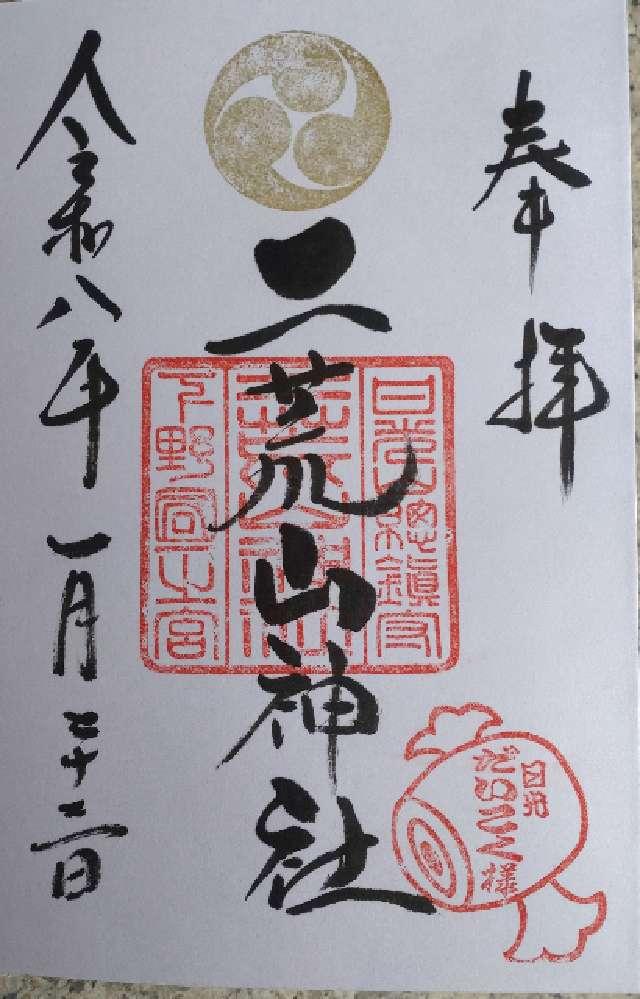 奉拝
二荒山神社
日光山總鎮守
二荒山神社
下野國一之宮
日光
だいこく様
令和八年 一月二十二日